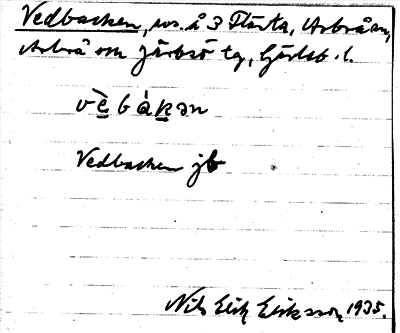 Vedbacken, ws. å 3 Flästa, Arbrå sn,
Arbrå om Järvsö tg, Gävleb. l.
vè̱bàḵən
Vedbacken jb
Nils Erik Eriksson 1935.